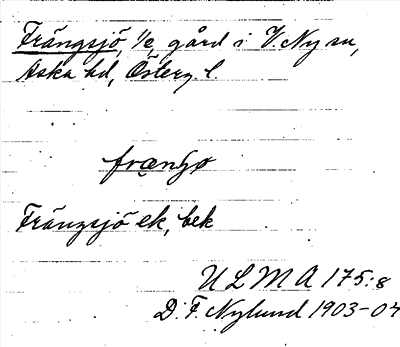 Frängsjö, 1/2 gård i V. Ny sn,
Aska hd, Österg. l.
Frängsjö ek, bek
ULMA 175:8
D. F. Nylund 1903-04